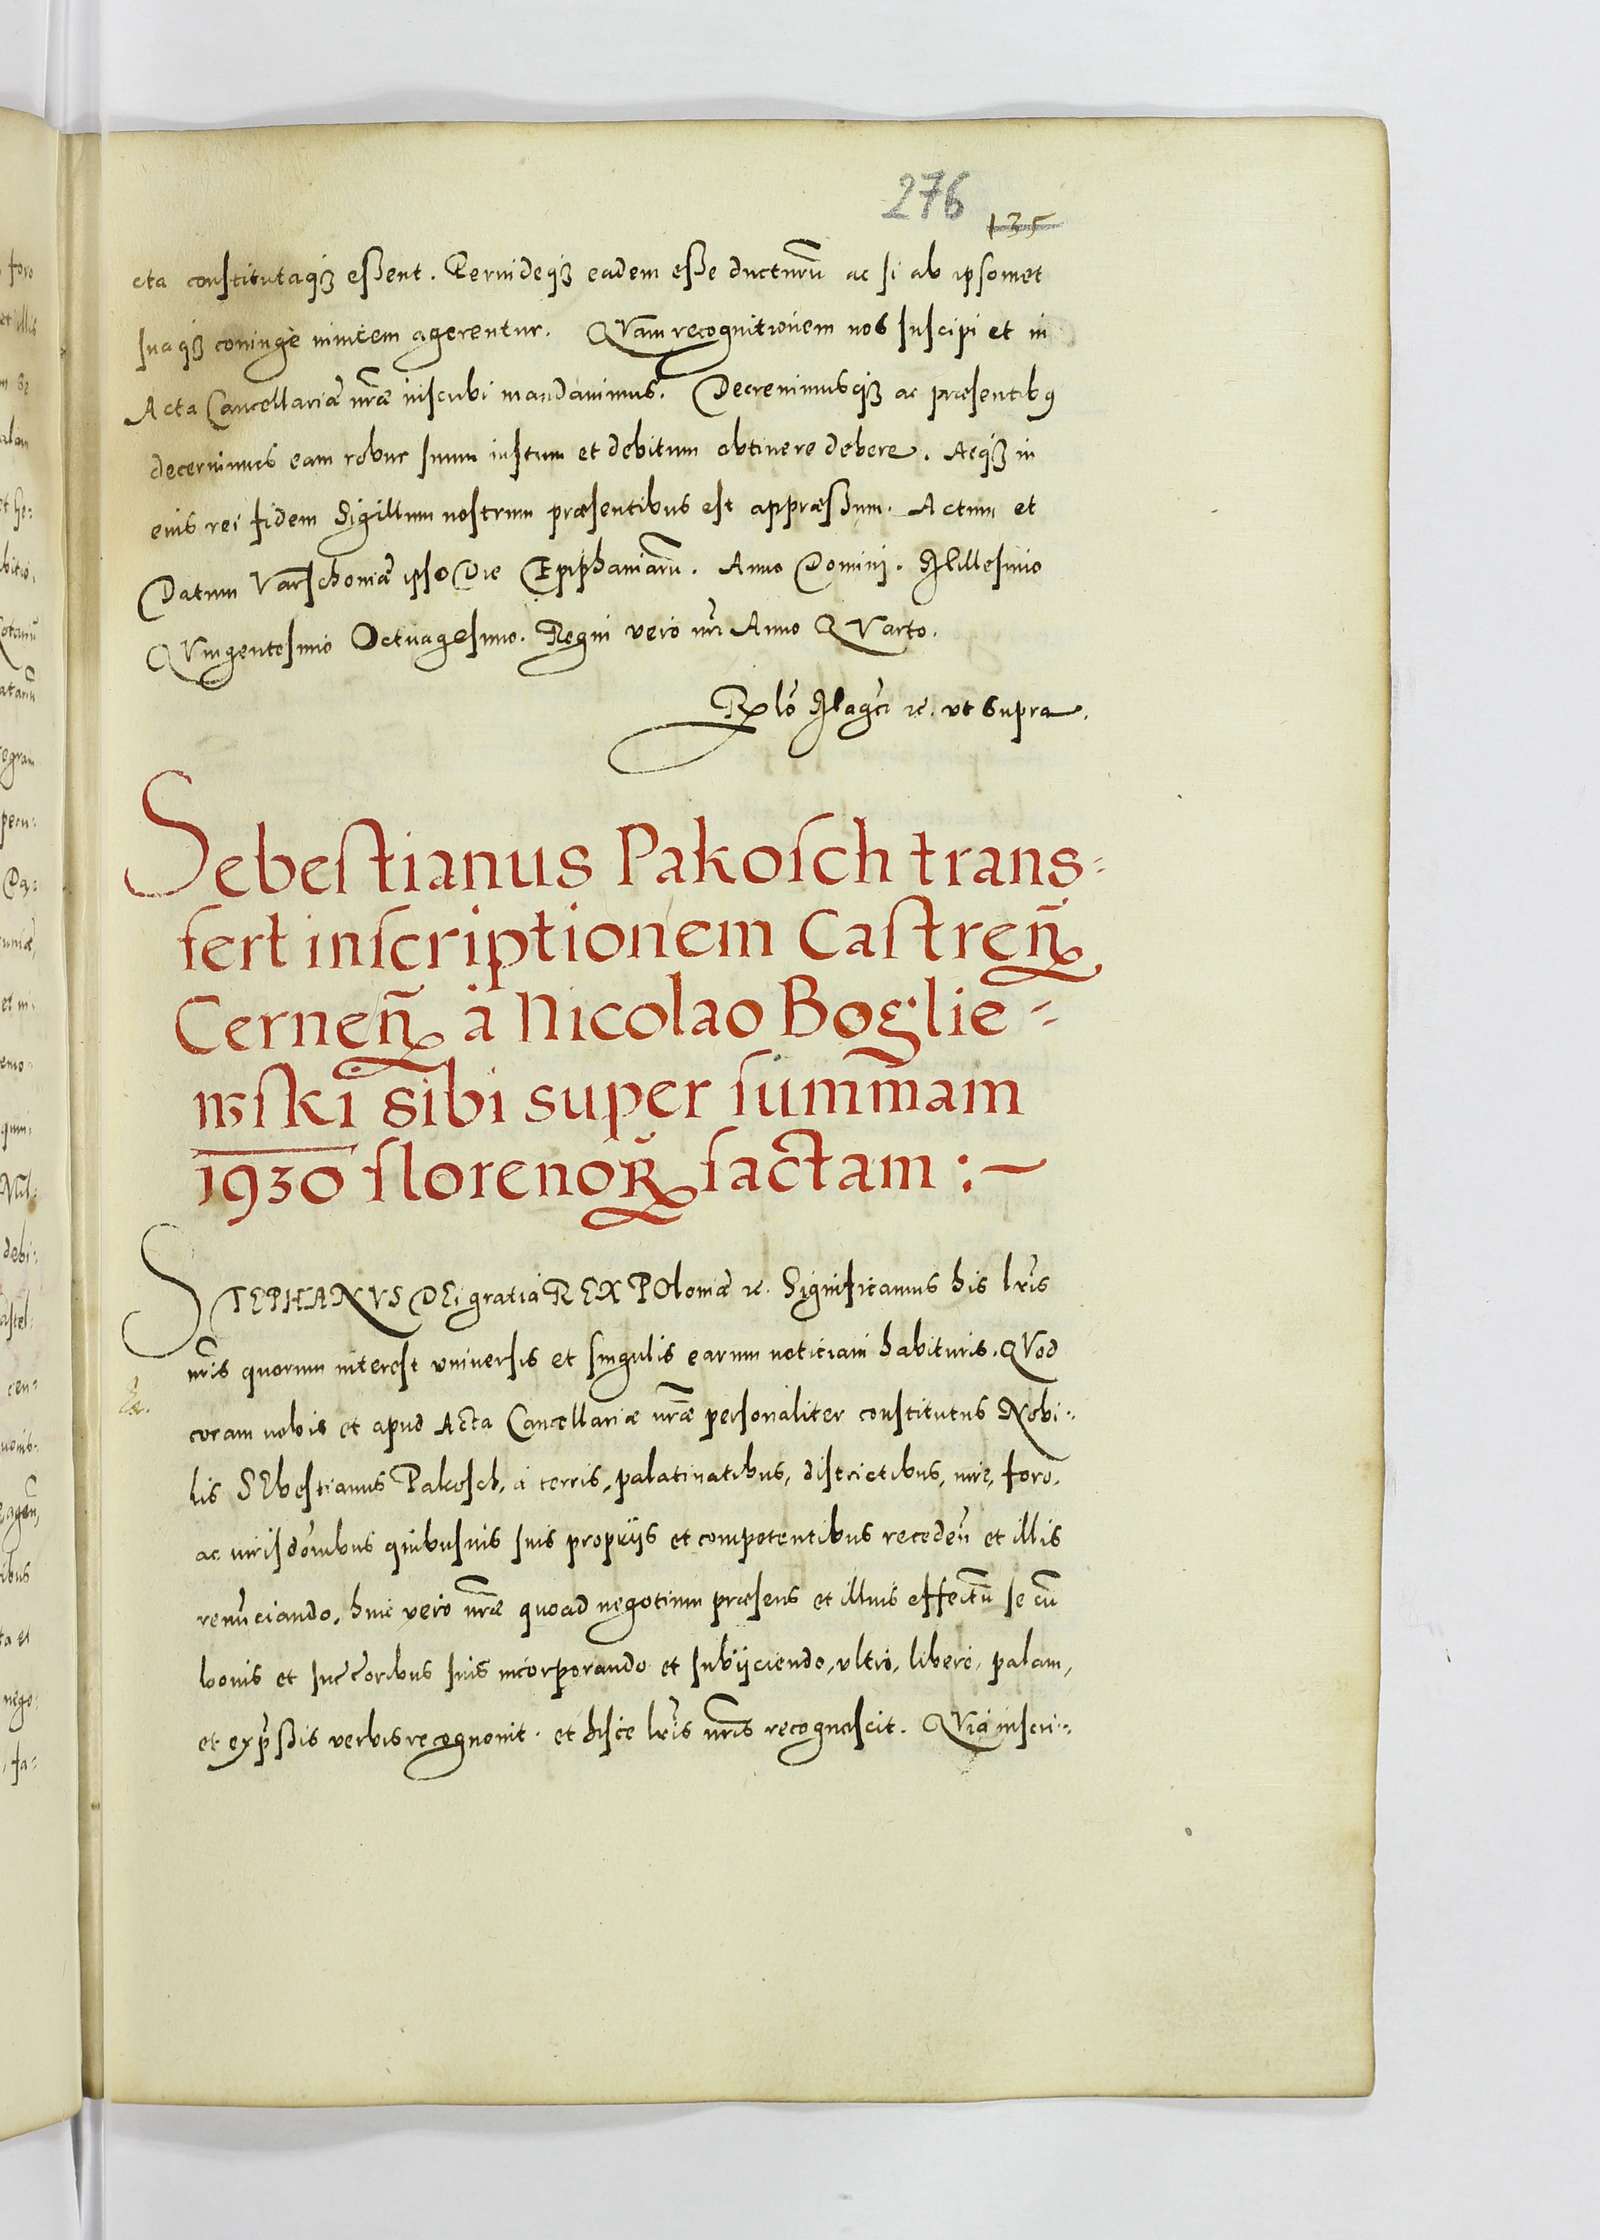 276
135
cta constitutaq(ue) essent. Perindeq(ue) eadem esse ducturū ac si ab ipsomet
suaq(ue) coniuge inuicem agerentur. QVam recognitionem nos suscipi et in
Acta Cancellariæ nr̃æ inscribi mandauimus. Decreuimusq(ue) ac præsentibꝯ
decernimus eam robur suum iustum et debitum obtinere debere. Atq(ue) in
euis rei fidem Sigillum nostrum præsentibus est appræssum. Actum et
Datum Varschouiæ ipso Die Epiphaniarū. Anno Domini. Millesimo
QVingentesimo Octuagesimo. Regni vero nr̃i Anno QVarto.
Rlō Mag̃ci ꝛc. vt Supra.
Sebestianus Pakosch trans=
fert inscriptionem Castren̄
Cernen̄ à Nicolao Boglie=
wski sibi super summam
1930 florenoꝝ factam :—
STEPHANVS DEi gratia REX POloniæ ꝛc. Significamus his lr̃is
nr̃is quorum interest vniuersis et singulis earum noticiam habituris. QVod
coram nobis et apud Acta Cancellariæ nr̃æ personaliter constitutus Nobi=
lis SEbestianus Pakosch, à terris, palatinatibus, districtibus, iure, foro,
ac iurisdōnibus quibusuis suis proprijs et competentibus receden̄ et illis
renūciando, huic vero nr̃æ quoad negotium præsens et illius effectū se cū
bonis et succ̃oribus suis incorporando et subijciendo, vltro, libere, palam,
et exp̃ssis verbis recognouit. et hisce lr̃is nr̃is recognoscit. QVia inscri=